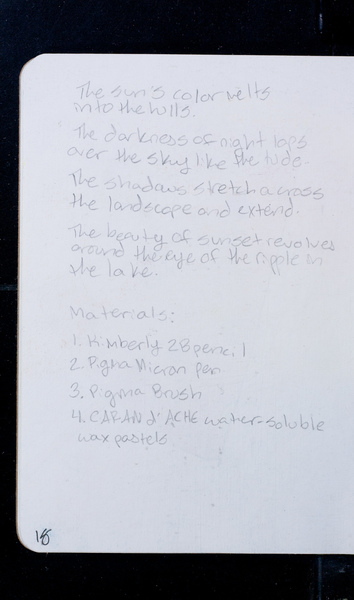 The sun's color melts
into the hills.
The darkness of night laps
over the sky like the tide.
The shadows stretch across
the landscape and extend.
The beauty of sunset revolves
around the eye of the ripple in
the lake.
Materials:
1. Kimberly 2B pencil
2. Pigma Micron pen
3. Pigma Brush
4. CARAN d'ACHE water-soluble
wax pastels